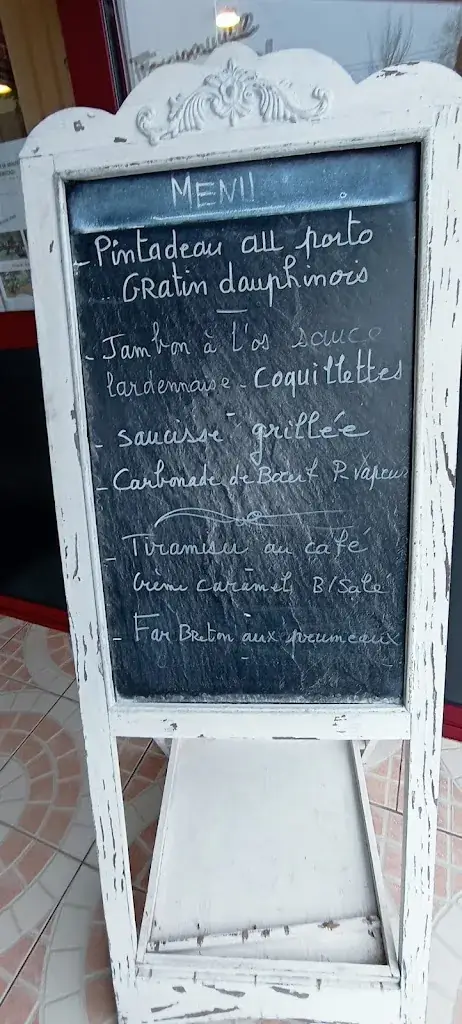 MENU
- Pintadeau au porto
Gratin dauphinois
- Jambon à l'os sauce
lardennaise - Coquillettes
- saucisse grillée
- Carbonade de Boeuf P. vapeur
- Tiramisu au café
Crème caramel B/Salé
- Far Breton aux pruneaux